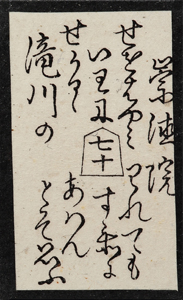 崇徳院
せをはやみ
いわに
せかるゝ
滝川の
七十
われても
すゑに
あはん
とそ思ふ